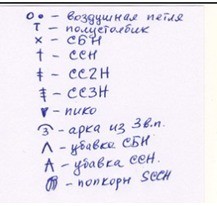 ○ • – воздушная петля
T – полустолбик
× – СБН
† – ССН
‡ – СС2Н
– СС3Н
– пико
– арка из 3 в.п.
Λ – убавка СБН
– убавка ССН.
– попкорн 5ССН